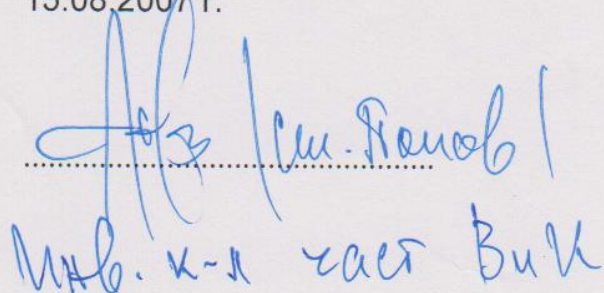 13.08.2007 г.
/ст. Попов/
Инв. к-л част ВиК